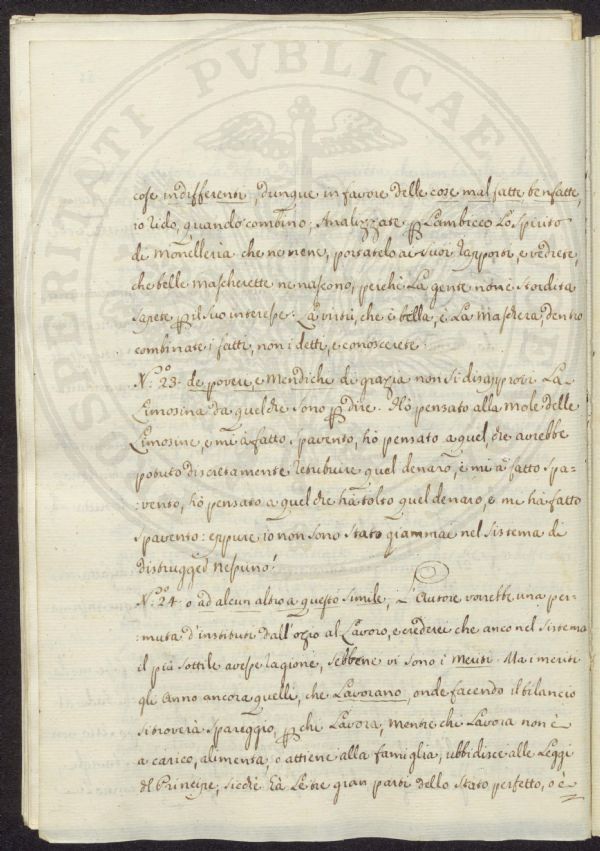 PROSPERITATI PVBLICAE
cose indifferenti, dunque in favore delle cose mal fatte, benfatte,
io rido, quando combino; Analizzate p Lambicco Lo Spirito
di monelleria che ne viene, portatelo ai suoi rapporti, e vedrete,
che belle mascherette ne nascono, perche La gente non è stordita
sapete p il suo interesse: La virtù, che è bella, è La maschera, dentro
combinate i fatti, non i detti, e conoscerete.
N.º 23. de povere, e mendiche di grazia non si disapprovi La
Limosina da quel che sono p dire. Hò pensato alla mole delle
Limosine, e mi à fatto spavento, hò pensato a quel, che avrebbe
potuto discretamente retribuire quel denaro, e mi à fatto spa-
:vento, hò pensato a quel che hà tolto quel denaro, e mi hà fatto
spavento: eppure io non sono stato giammai nel sistema di
distrugger nessuno!
N.º 24. o ad alcun altro a questo simile, L'Autore vorrebbe una per-
:muta d'instituti dall'ozio al Lavoro, e crederei che anco nel sistema
il più sottile avesse ragione, sebbene vi sono i meriti. Ma i meriti
gli Anno ancora quelli, che Lavorano, onde facendo il bilancio
si troverà spareggio, p chi Lavora, mentre chi Lavora non è
a carico, alimenta, o attiene alla famiglia, ubbidisce alle Leggi
del Principe, sicchè hà Le tre gran parti dello Stato perfetto, o è